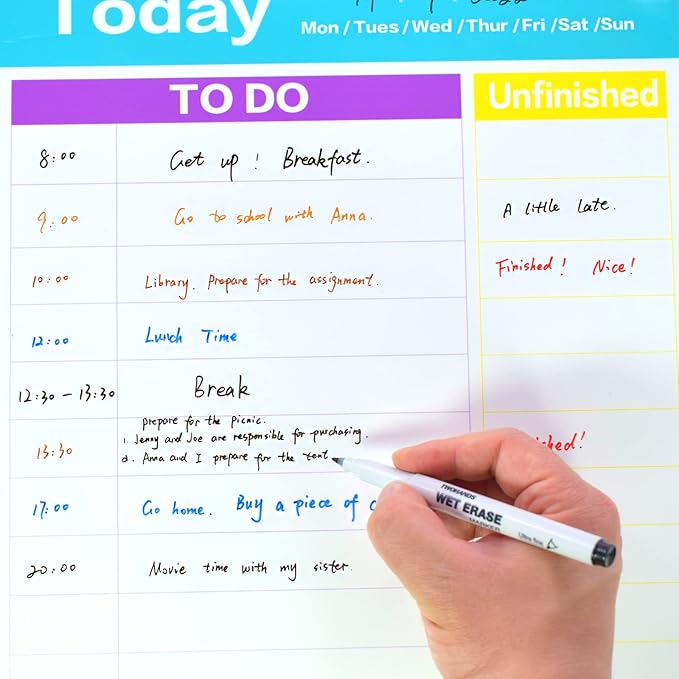 Today
Mon / Tues / Wed / Thur / Fri / Sat / Sun
TO DO
Unfinished
8:00 Get up! Breakfast.
9:00 Go to school with Anna.
A little late.
10:00 Library. Prepare for the assignment.
Finished! Nice!
12:00 Lunch Time
12:30 - 13:30 Break
13:30
prepare for the picnic.
1. Jenny and Joe are responsible for purchasing.
2. Anna and I prepare for the tent
17:00 Go home. Buy a piece of
20:00 Movie time with my sister.
TWOHANDS
WET ERASE
MARKER
Ultra fine